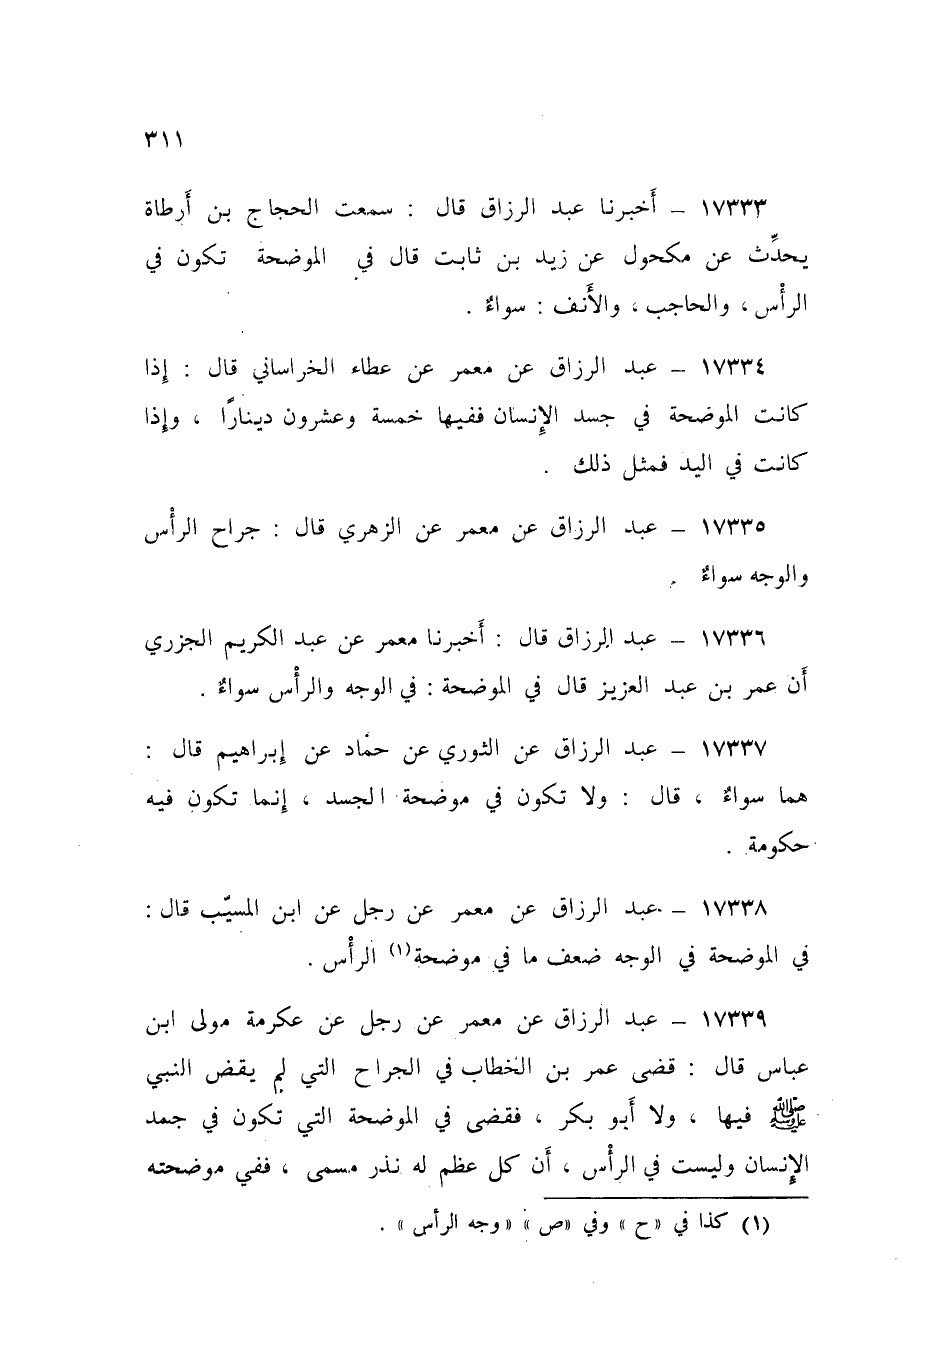 ٣١١
١٧٣٣٣ ـ أَخبرنا عبد الرزاق قال : سمعت الحجاج بن أَرطاة
يحدِّث عن مكحول عن زيد بن ثابت قال في الموضحة تكون في
الرأْس ، والحاجب ، والأَنف : سواءٌ .
١٧٣٣٤ ـ عبد الرزاق عن معمر عن عطاء الخراساني قال : إِذا
كانت الموضحة في جسد الإِنسان ففيها خمسة وعشرون دينارًا ، وإِذا
كانت في اليد فمثل ذلك .
١٧٣٣٥ ـ عبد الرزاق عن معمر عن الزهري قال : جراح الرأْس
والوجه سواءٌ .
١٧٣٣٦ ـ عبد الرزاق قال : أَخبرنا معمر عن عبد الكريم الجزري
أَن عمر بن عبد العزيز قال في الموضحة : في الوجه والرأْس سواءٌ .
١٧٣٣٧ ـ عبد الرزاق عن الثوري عن حمّاد عن إِبراهيم قال :
هما سواءٌ ، قال : ولا تكون في موضحة الجسد ، إِنما تكون فيه
حكومة .
١٧٣٣٨ ـ عبد الرزاق عن معمر عن رجل عن ابن المسيّب قال :
في الموضحة في الوجه ضعف ما في موضحة(١) الرأْس .
١٧٣٣٩ ـ عبد الرزاق عن معمر عن رجل عن عكرمة مولى ابن
عباس قال : قضى عمر بن الخطاب في الجراح التي لم يقض النبي
ﷺ فيها ، ولا أَبو بكر ، فقضى في الموضحة التي تكون في جسد
الإِنسان وليست في الرأْس ، أَن كل عظم له نذر مسمى ، ففي موضحته
(١) كذا في «ح» وفي «ص» «وجه الرأس» .